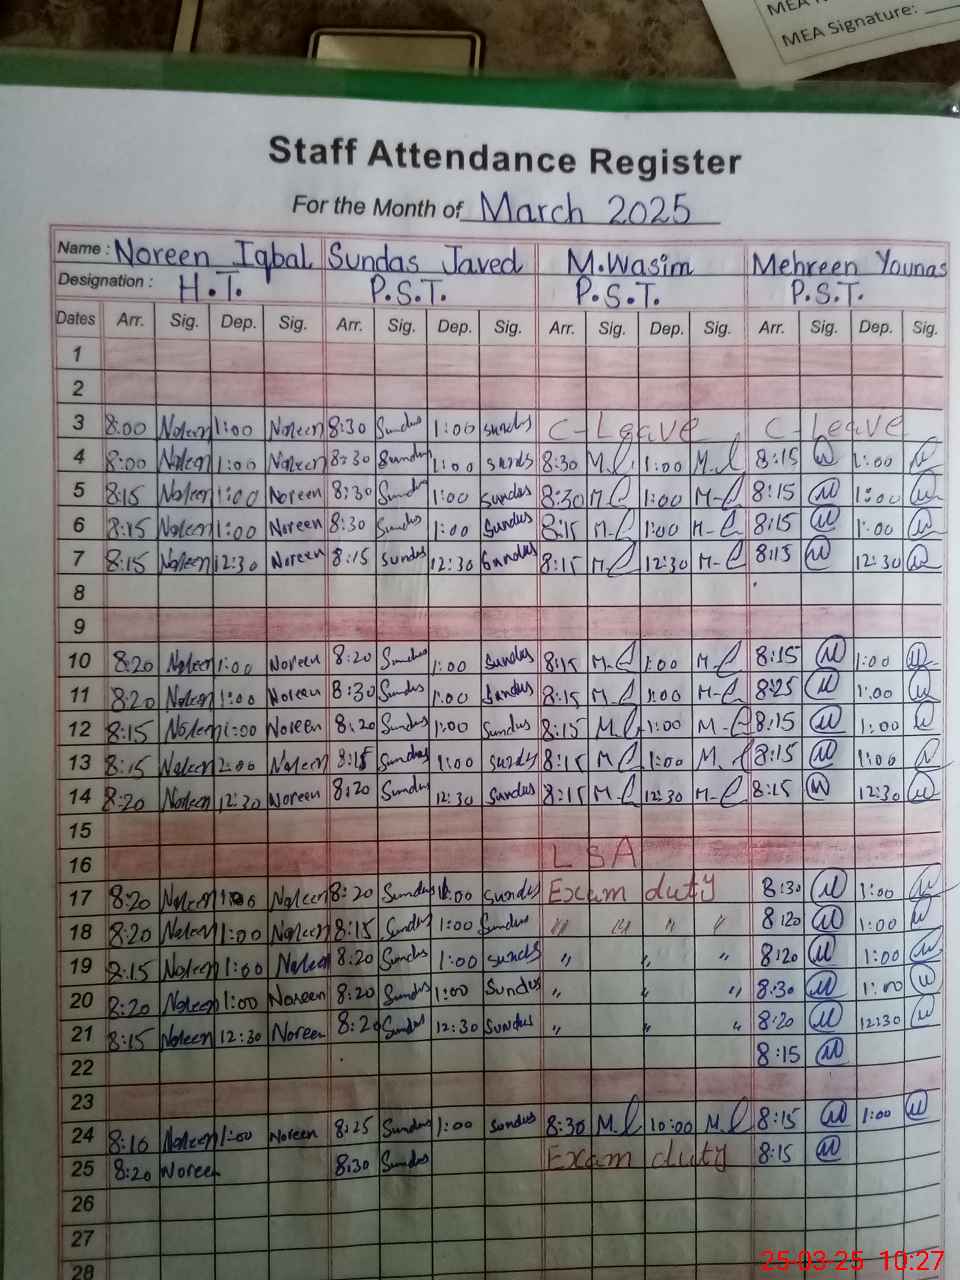 MEA Signature:
Staff Attendance Register
For the Month of March 2025
Name : Noreen Iqbal Sundas Javed M.Wasim Mehreen Younas
Designation : H.T. P.S.T. P.S.T. P.S.T.
Dates Arr. Sig. Dep. Sig. Arr. Sig. Dep. Sig. Arr. Sig. Dep. Sig. Arr. Sig. Dep. Sig.
1
2
3 8:00 Noreen 1:00 Noreen 8:30 Sundus 1:00 Sundus C-Leave C-Leave
4 8:00 Noreen 1:00 Noreen 8:30 Sundus 1:00 Sundus 8:30 1:00 8:15 1:00
5 8:15 Noreen 1:00 Noreen 8:30 Sundus 1:00 Sundus 8:30 1:00 8:15 1:00
6 8:15 Noreen 1:00 Noreen 8:30 Sundus 1:00 Sundus 8:15 1:00 8:15 1:00
7 8:15 Noreen 12:30 Noreen 8:15 Sundus 12:30 Sundus 8:15 12:30 8:15 12:30
8
9
10 8:20 Noreen 1:00 Noreen 8:20 Sundus 1:00 Sundus 8:15 1:00 8:15 1:00
11 8:20 Noreen 1:00 Noreen 8:30 Sundus 1:00 Sundus 8:15 1:00 8:25 1:00
12 8:15 Noreen 1:00 Noreen 8:20 Sundus 1:00 Sundus 8:15 1:00 8:15 1:00
13 8:15 Noreen 2:00 Noreen 8:15 Sundus 1:00 Sundus 8:15 1:00 8:15 1:00
14 8:20 Noreen 12:30 Noreen 8:20 Sundus 12:30 Sundus 8:15 12:30 8:15 12:30
15
16 LSA
17 8:20 Noreen Noreen 8:20 Sundus 1:00 Sundus Exam duty 8:30 1:00
18 8:20 Noreen 1:00 Noreen 8:15 Sundus 1:00 Sundus " " " " 8:20 1:00
19 8:15 Noreen 1:00 Noreen 8:20 Sundus 1:00 Sundus " " " 8:20 1:00
20 8:20 Noreen 1:00 Noreen 8:20 Sundus 1:00 Sundus " " " 8:30 1:00
21 8:15 Noreen 12:30 Noreen 8:20 Sundus 12:30 Sundus " " " 8:20 12:30
22 8:15
23
24 8:10 Noreen 1:00 Noreen 8:25 Sundus 1:00 Sundus 8:30 10:00 8:15 1:00
25 8:20 Noreen 8:30 Sundus Exam duty 8:15
26
27
28
25-03-25 10:27